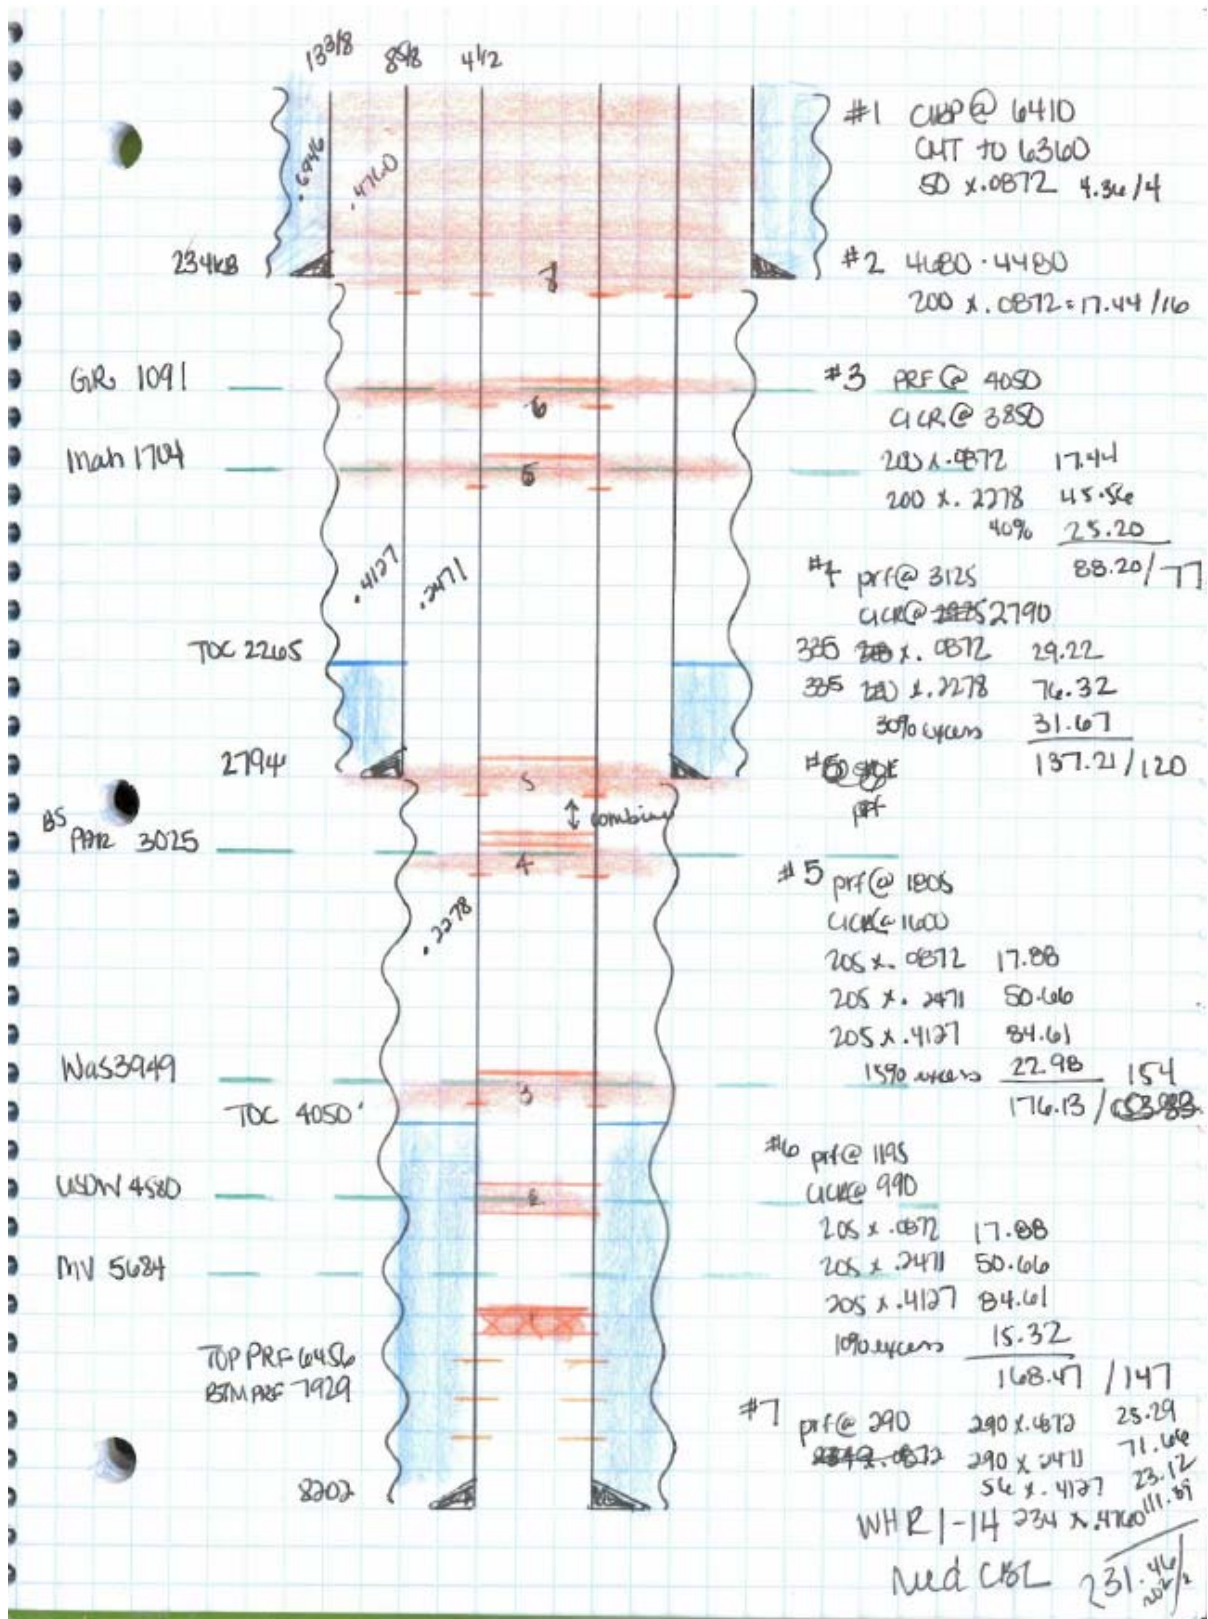 13 3/8 8 5/8 4 1/2
.6946
.4760
234KB
7
GR 1091
6
Mah 1704
5
.4127
.2471
TOC 2265
2794
5
↕ combine
BS
PAR 3025
4
.2278
Was 3949
3
TOC 4050'
USDW 4580
2
MV 5684
1
TOP PRF 6456
BTM PRF 7929
8202
#1 CIBP @ 6410
CMT to 6360
50 x .0872 4.36/4
#2 4680-4480
200 x .0872 = 17.44/16
#3 PRF @ 4050
CICR @ 3850
200 x .0872 17.44
200 x .2278 45.56
40% 25.20
88.20/77
#4 prf @ 3125
CICR @ 2790
335 x .0872 29.22
335 x .2278 76.32
30% excess 31.67
137.21/120
prf
#5 prf @ 1805
CICR @ 1600
205 x .0872 17.88
205 x .2471 50.66
205 x .4127 84.61
15% excess 22.98
176.13 / 154
#6 prf @ 1195
CICR @ 990
205 x .0872 17.88
205 x .2471 50.66
205 x .4127 84.61
10% excess 15.32
168.47 / 147
#7 prf @ 290
290 x .0872 25.29
290 x .2471 71.66
56 x .4127 23.12
234 x .4760 111.39
WHR 1-14
Need CBL 231.46